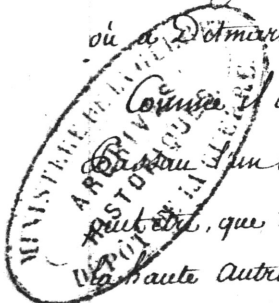 où a Detmar
Comme il
Passau l'un
peut être, que
la haute Autri
MINISTÈRE DE LA GUERRE
ARCHIVES
HISTORIQUES
DÉPÔT DE LA GUERRE